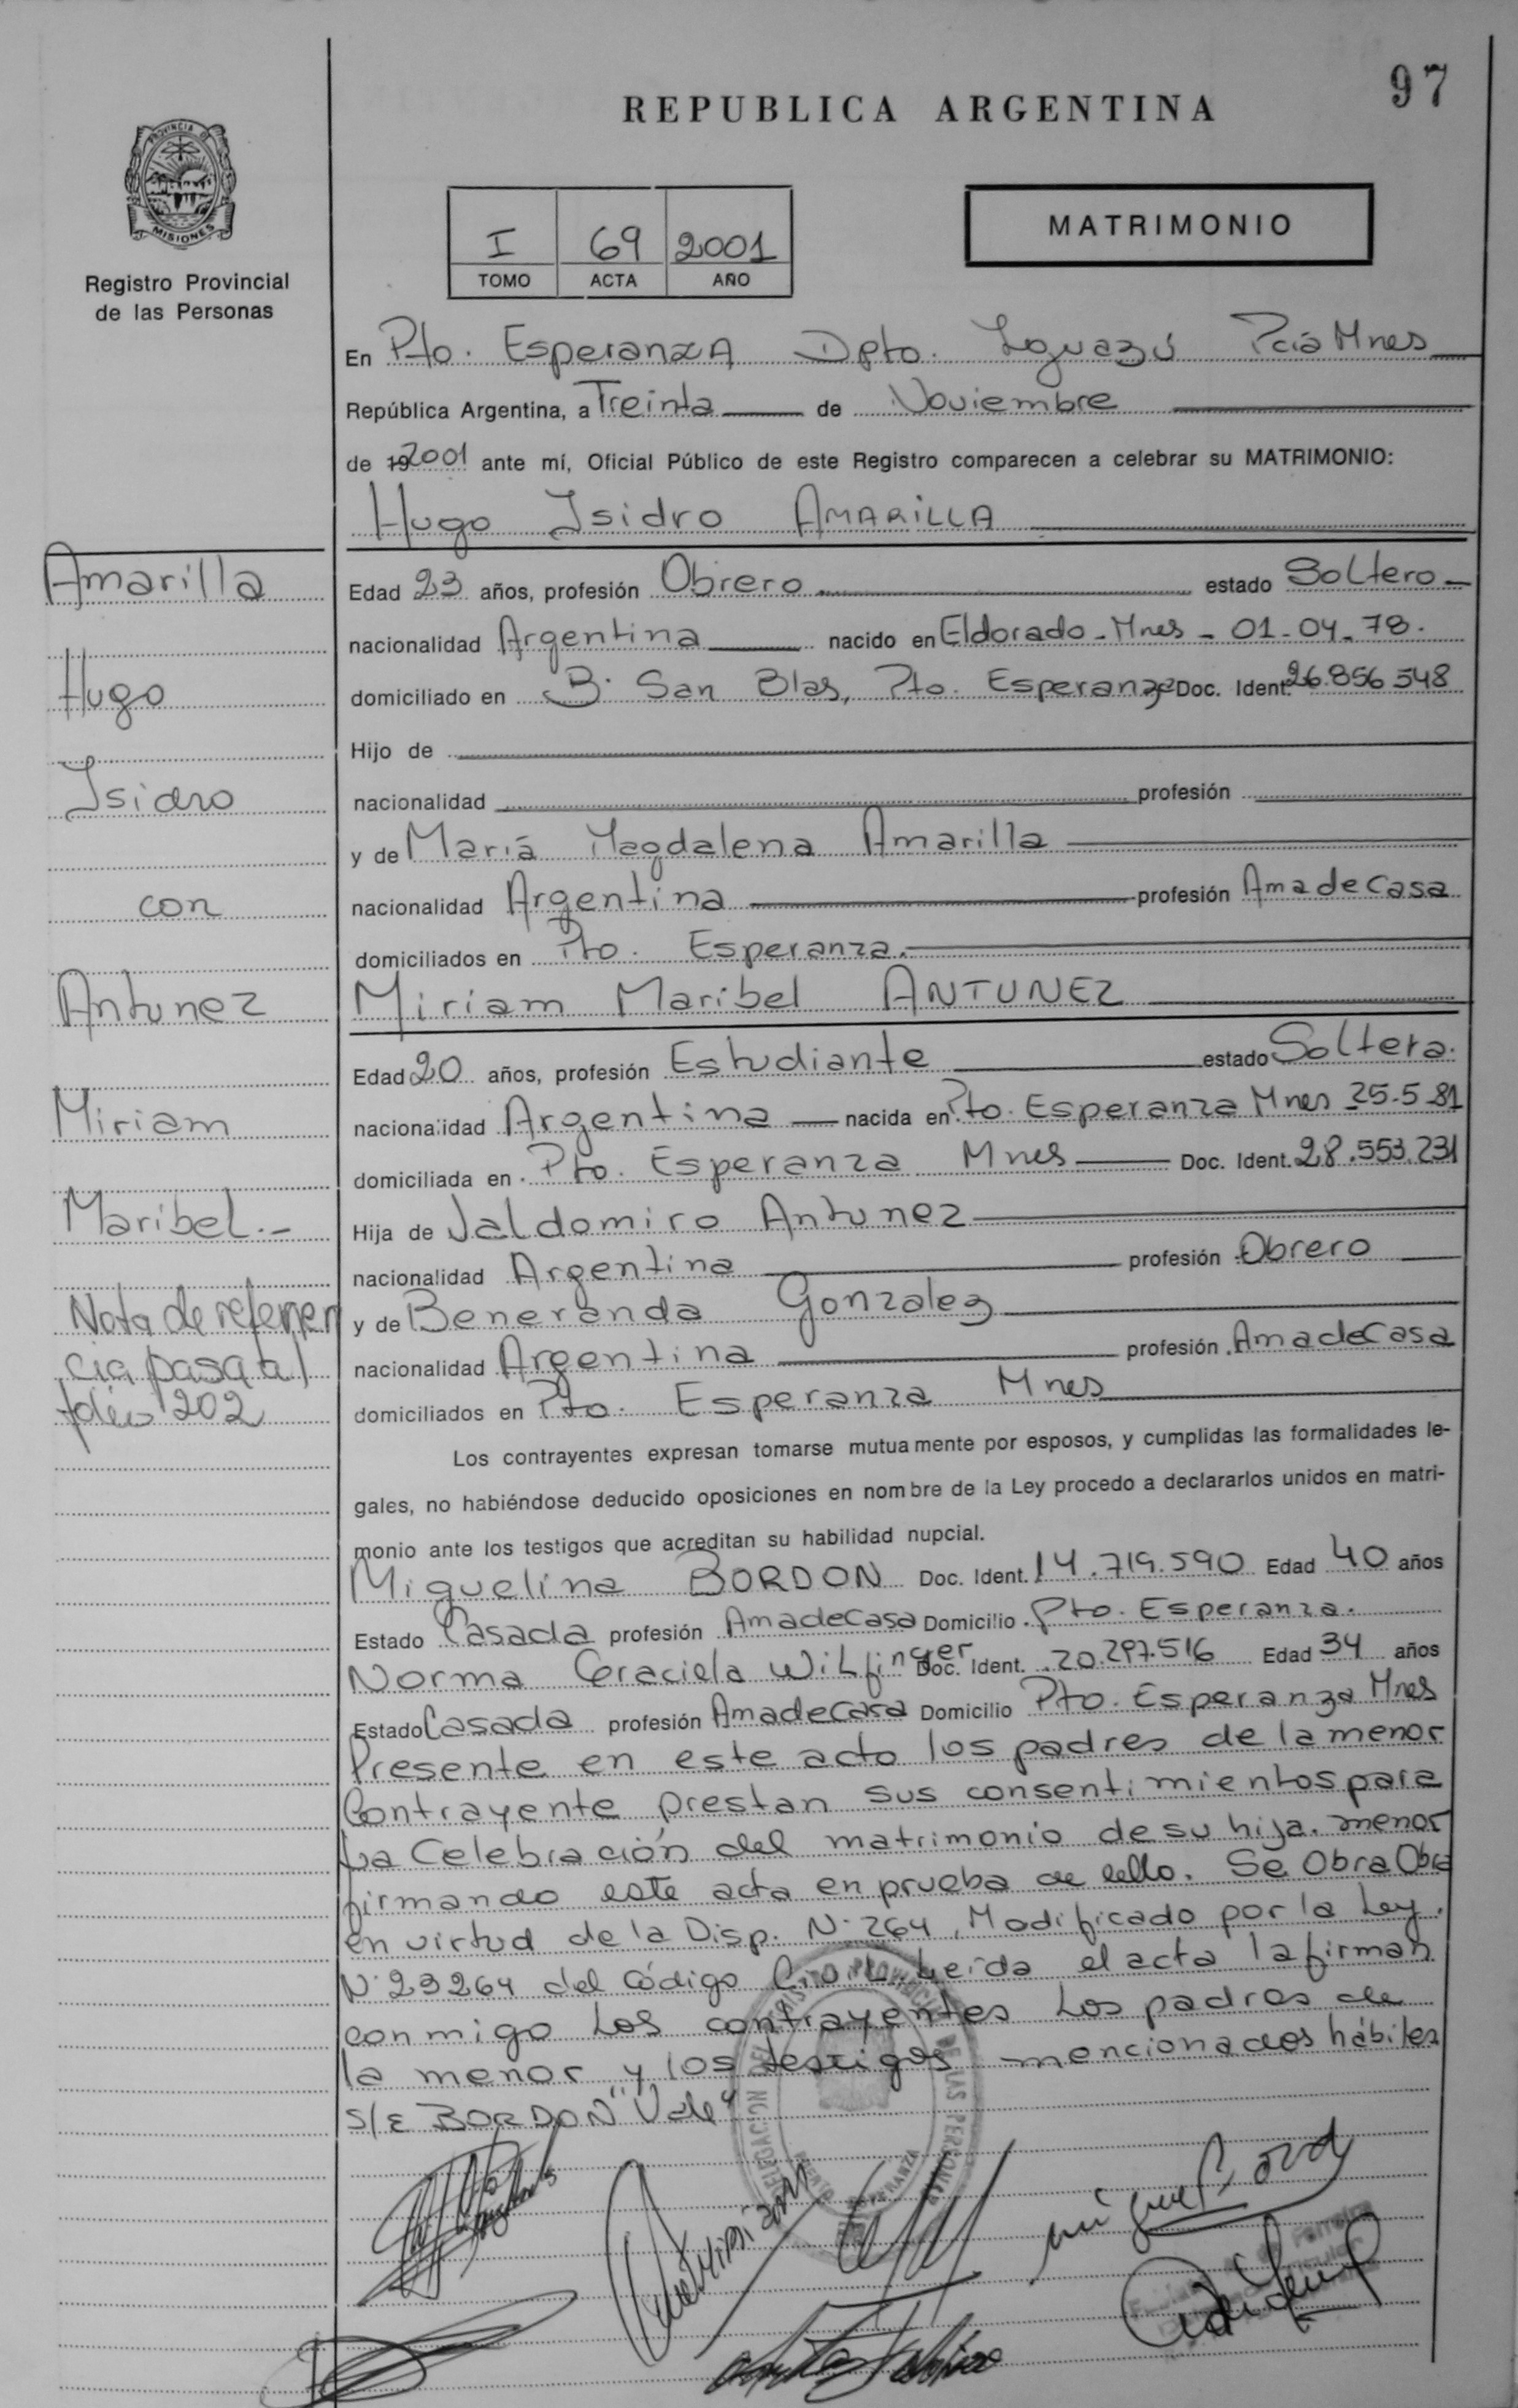 97
REPUBLICA ARGENTINA
PROVINCIA DE
MISIONES
Registro Provincial
de las Personas
I 69 2001
TOMO ACTA AÑO
MATRIMONIO
En Pto. Esperanza Dpto. Iguazú Pcia Mnes
República Argentina, a Treinta de Noviembre
de 19 2001 ante mí, Oficial Público de este Registro comparecen a celebrar su MATRIMONIO:
Hugo Isidro AMARILLA
Amarilla
Hugo
Isidro
con
Antunez
Miriam
Maribel.-
Nota de referen
cia pasa al
folio 202
Edad 23 años, profesión Obrero estado Soltero
nacionalidad Argentina nacido en Eldorado - Mnes - 01-04-78.
domiciliado en B· San Blas, Pto. Esperanza Doc. Ident. 26.856 548
Hijo de
nacionalidad profesión
y de María Magdalena Amarilla
nacionalidad Argentina profesión Ama de Casa
domiciliados en Pto. Esperanza.
Miriam Maribel ANTUNEZ
Edad 20 años, profesión Estudiante estado Soltera.
nacionalidad Argentina nacida en Pto. Esperanza Mnes 25-5-81
domiciliada en Pto. Esperanza Mnes Doc. Ident. 28.553.231
Hija de Valdomiro Antunez
nacionalidad Argentina profesión Obrero
y de Beneranda Gonzalez
nacionalidad Argentina profesión Ama de Casa
domiciliados en Pto. Esperanza Mnes
Los contrayentes expresan tomarse mutuamente por esposos, y cumplidas las formalidades le-
gales, no habiéndose deducido oposiciones en nombre de la Ley procedo a declararlos unidos en matri-
monio ante los testigos que acreditan su habilidad nupcial.
Miguelina BORDON Doc. Ident. 14.719.590 Edad 40 años
Estado Casada profesión Ama de Casa Domicilio Pto. Esperanza.
Norma Graciela Wilfinger Doc. Ident. 20.297.516 Edad 34 años
Estado Casada profesión Ama de Casa Domicilio Pto. Esperanza Mnes
Presente en este acto los padres de la menor
Contrayente prestan sus consentimientos para
La Celebración del matrimonio de su hija menor
firmando este acta en prueba de ello. Se Obra Obra
en virtud de la Disp. N· 264, Modificado por la Ley.
N· 23264 del Código Civil. Leída el acta la firman
conmigo Los contrayentes Los padres de
la menor y los testigos mencionados hábiles
S/E BORDON "Vale"
DELEGACION DEL REGISTRO PROVINCIAL DE LAS PERSONAS
ESPERANZA